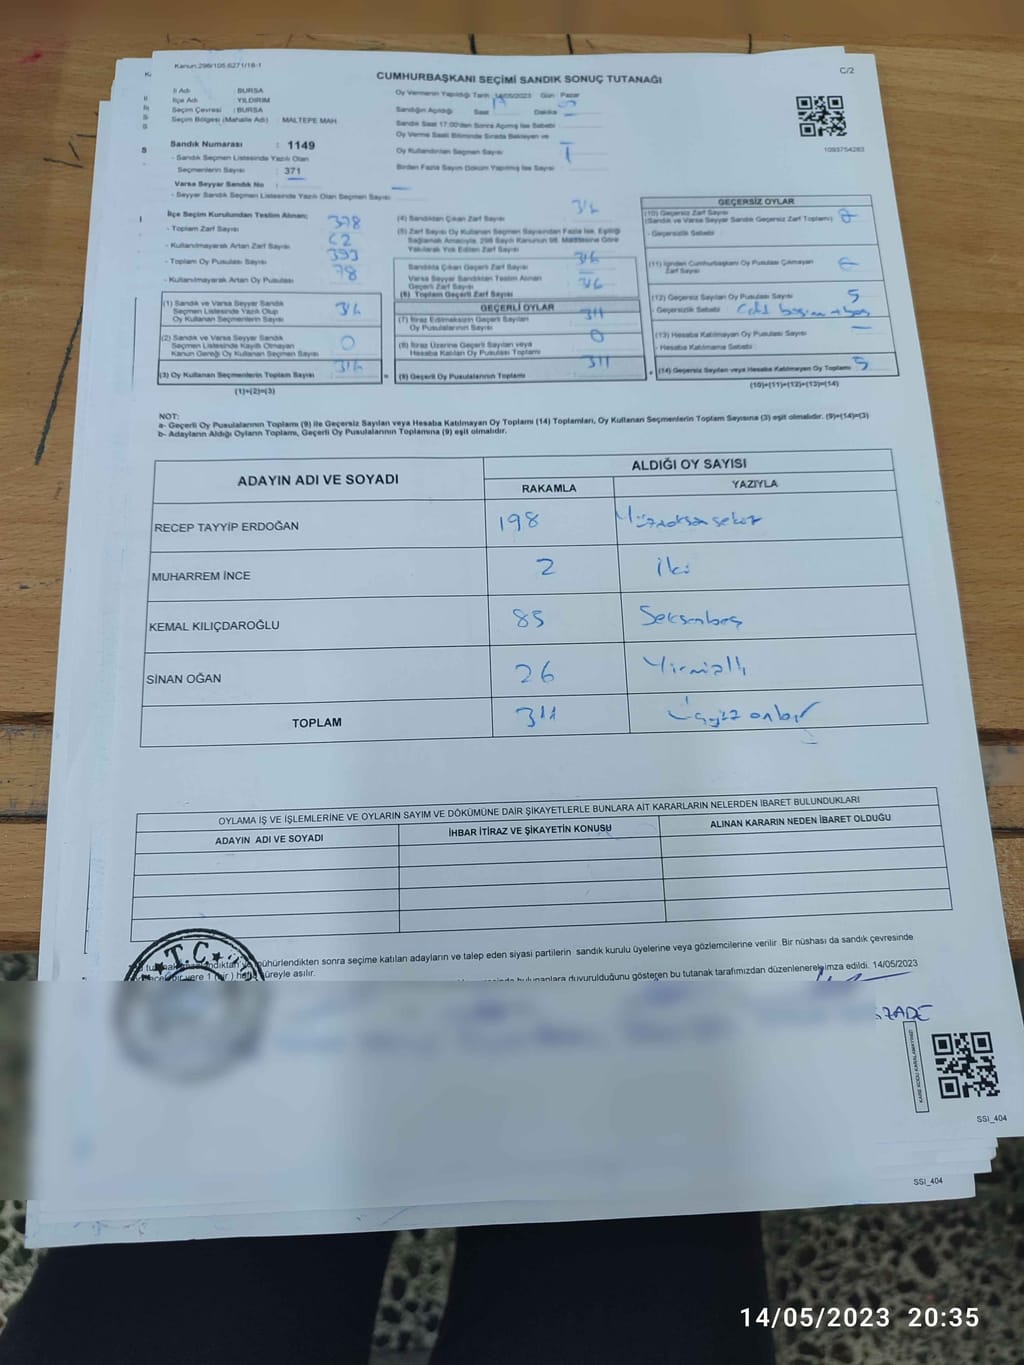 Kanun:298/105,6271/18-1
CUMHURBAŞKANI SEÇİMİ SANDIK SONUÇ TUTANAĞI
C/2
İl Adı : BURSA
İlçe Adı : YILDIRIM
Seçim Çevresi : BURSA
Seçim Bölgesi (Mahalle Adı) : MALTEPE MAH.
Sandık Numarası : 1149
- Sandık Seçmen Listesinde Yazılı Olan
Seçmenlerin Sayısı : 371
Varsa Seyyar Sandık No :
- Seyyar Sandık Seçmen Listesinde Yazılı Olan Seçmen Sayısı
Oy Vermenin Yapıldığı Tarih 14/05/2023 Gün : Pazar
Sandığın Açıldığı Saat Dakika
Sandık Saat 17:00'den Sonra Açılmış İse Sebebi
Oy Verme Saati Bitiminde Sırada Bekleyen ve
Oy Kullandırılan Seçmen Sayısı
Birden Fazla Sayım Döküm Yapılmış İse Sayısı
1093754283
İlçe Seçim Kurulundan Teslim Alınan;
- Toplam Zarf Sayısı 378
- Kullanılmayarak Artan Zarf Sayısı 62
- Toplam Oy Pusulası Sayısı 393
- Kullanılmayarak Artan Oy Pusulası 78
(1) Sandık ve Varsa Seyyar Sandık
Seçmen Listesinde Yazılı Olup
Oy Kullanan Seçmenlerin Sayısı 316
(2) Sandık ve Varsa Seyyar Sandık
Seçmen Listesinde Kayıtlı Olmayan
Kanun Gereği Oy Kullanan Seçmen Sayısı 0
(3) Oy Kullanan Seçmenlerin Toplam Sayısı 316
(1)+(2)=(3)
(4) Sandıktan Çıkan Zarf Sayısı 316
(5) Zarf Sayısı Oy Kullanan Seçmen Sayısından Fazla İse, Eşitliği
Sağlamak Amacıyla, 298 Sayılı Kanunun 98. Maddesine Göre
Yakılarak Yok Edilen Zarf Sayısı
Sandıkta Çıkan Geçerli Zarf Sayısı 316
Varsa Seyyar Sandıktan Teslim Alınan
Geçerli Zarf Sayısı
(6) Toplam Geçerli Zarf Sayısı 316
GEÇERLİ OYLAR
(7) İtiraz Edilmeksizin Geçerli Sayılan
Oy Pusulalarının Sayısı 311
(8) İtiraz Üzerine Geçerli Sayılan veya
Hesaba Katılan Oy Pusulası Toplamı 0
(9) Geçerli Oy Pusulalarının Toplamı 311
GEÇERSİZ OYLAR
(10) Geçersiz Zarf Sayısı
(Sandık ve Varsa Seyyar Sandık Geçersiz Zarf Toplamı)
- Geçersizlik Sebebi
(11) İçinden Cumhurbaşkanı Oy Pusulası Çıkmayan
Zarf Sayısı
(12) Geçersiz Sayılan Oy Pusulası Sayısı 5
- Geçersizlik Sebebi
(13) Hesaba Katılmayan Oy Pusulası Sayısı —
- Hesaba Katılmama Sebebi
(14) Geçersiz Sayılan veya Hesaba Katılmayan Oy Toplamı 5
(10)+(11)+(12)+(13)=(14)
NOT:
a- Geçerli Oy Pusulalarının Toplamı (9) ile Geçersiz Sayılan veya Hesaba Katılmayan Oy Toplamı (14) Toplamları, Oy Kullanan Seçmenlerin Toplam Sayısına (3) eşit olmalıdır. (9)+(14)=(3)
b- Adayların Aldığı Oyların Toplamı, Geçerli Oy Pusulalarının Toplamına (9) eşit olmalıdır.
ADAYIN ADI VE SOYADI
ALDIĞI OY SAYISI
RAKAMLA YAZIYLA
RECEP TAYYİP ERDOĞAN 198 Yüzdoksansekiz
MUHARREM İNCE 2 İki
KEMAL KILIÇDAROĞLU 85 Seksenbeş
SİNAN OĞAN 26 Yirmialtı
TOPLAM 311 Üçyüz onbir
OYLAMA İŞ VE İŞLEMLERİNE VE OYLARIN SAYIM VE DÖKÜMÜNE DAİR ŞİKAYETLERLE BUNLARA AİT KARARLARIN NELERDEN İBARET BULUNDUKLARI
ADAYIN ADI VE SOYADI İHBAR İTİRAZ VE ŞİKAYETİN KONUSU ALINAN KARARIN NEDEN İBARET OLDUĞU
T.C.
mühürlendikten sonra seçime katılan adayların ve talep eden siyasi partilerin sandık kurulu üyelerine veya gözlemcilerine verilir. Bir nüshası da sandık çevresinde
süreyle asılır.
bulunanlara duyurulduğunu gösteren bu tutanak tarafımızdan düzenlenerek imza edildi. 14/05/2023
ZADE
KARE KODU KARALAMAYINIZ!
SSI_404
SSI_404
14/05/2023 20:35